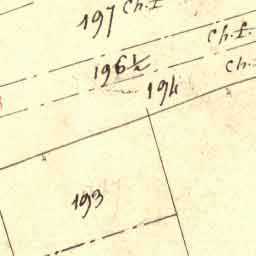 197 Ch.f.
Ch.f.
196½
Ch.
194
193